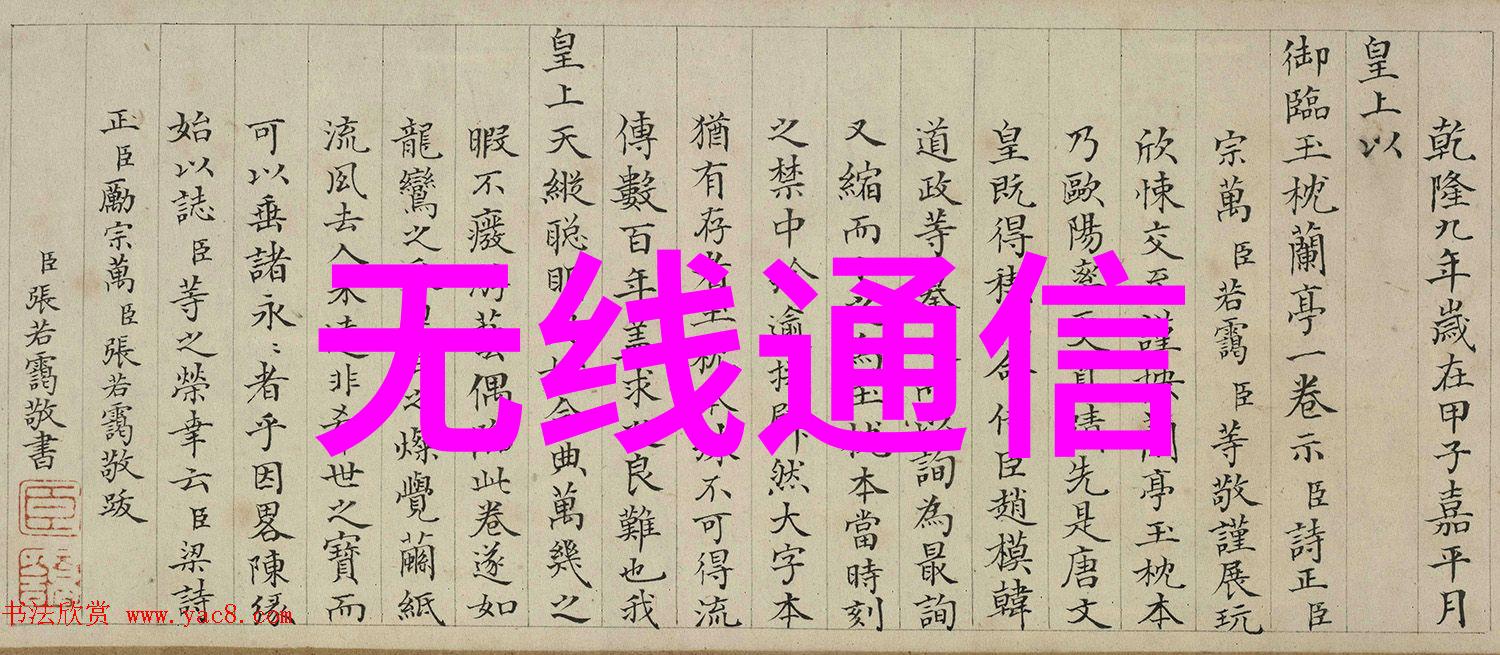 乾隆九年歲在甲子嘉平月
皇上以
御臨玉枕蘭亭一卷示臣詩正臣
宗萬臣若靄臣等敬謹展玩
欣悚交至謹按蘭亭玉枕本
乃歐陽率先是唐文
皇既得命侍臣趙模韓
道政等詢為最詢
又縮而為玉枕本當時刻
之禁中於逾然大字本
猶有存者玉本殊不可得流
傳數百年蓋求之良難也我
皇上天縱聰明典萬幾之
暇不廢游藝偶臨此卷遂如
龍鸞之之燦覺繭紙
流風去人未遠非希世之寶而
可以垂諸永〻者乎因畧陳緣
始以誌臣等之榮幸云臣梁詩
正臣勵宗萬臣張若靄敬跋
臣張若靄敬書
无线通信
书法欣赏 www.yac8.com